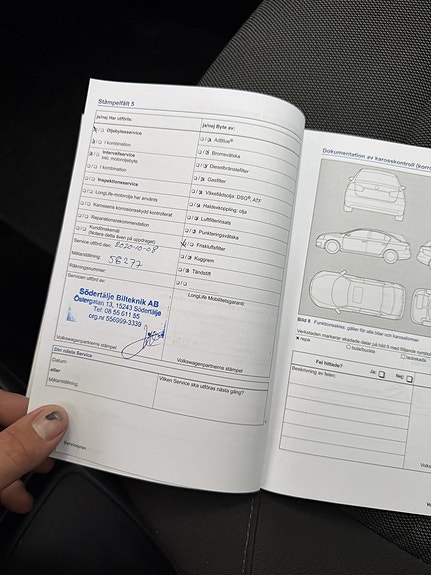 Stämpelfält 5
ja/nej Har utförts:
Oljebytesservice
I kombination
Intervallservice
inkl. motoroljebyte
I kombination
Inspektionsservice
LongLife-motorolja har använts
Karossens korrosionsskydd kontrollerat
Reparationsrekommendation
Kundönskemål
(Notera detta även på uppdraget)
Service utförd den: 2020-10-08
Mätarställning: 56277
Räkningsnummer:
Servicen utförd av:
Södertälje Bilteknik AB
Östergatan 13, 15243 Södertälje
Tel: 08 55 611 55
org.nr 556999-3339
Volkswagenpartnerns stämpel
ja/nej Byte av:
AdBlue®
Bromsvätska
Dieselbränslefilter
Gasfilter
Växellådsolja: DSG®, ATF
Haldexkoppling: olja
Luftfilterinsats
Punkteringsvätska
Friskluftsfilter
Kuggrem
Tändstift
LongLife Mobilitetsgaranti:
Volkswagenpartnerns stämpel
Din nästa Service
Datum:
eller
Mätarställning:
Vilken Service ska utföras nästa gång?
Serviceplan
Dokumentation av karosskontroll (korro
Bild 8 Funktionsskiss: gäller för alla bilar och karossformer
Verkstaden markerar skadade delar på bild 8 med följande symbol
x repa
o bula/buckla
Fel hittades?
Ja:
Nej:
Beskrivning av felen: